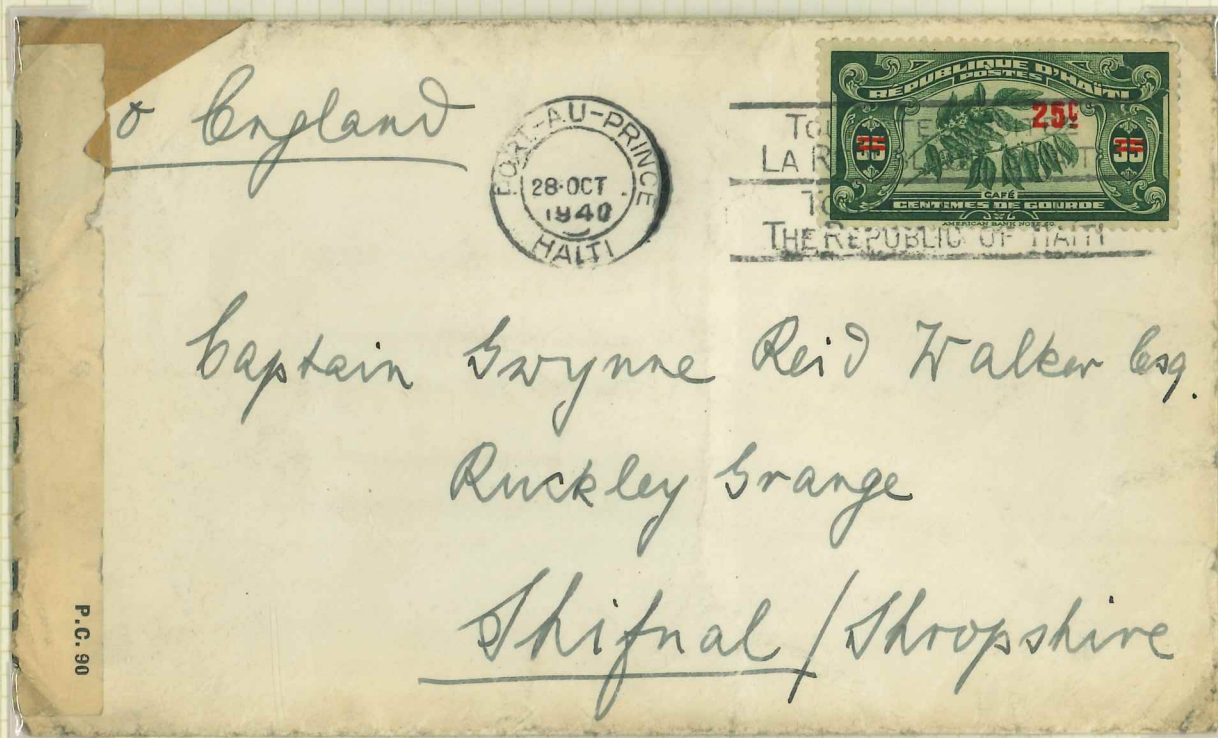 o England
PORT-AU-PRINCE
28·OCT
1940
HAITI
LA
THE REPUBLIC OF HAITI
RÉPUBLIQUE D'HAITI
POSTES
25¢
35 35
CAFÉ
CENTIMES DE GOURDE
AMERICAN BANK NOTE CO.
Captain Gwynne Reid Walker Esq.
Ruckley Grange
Shifnal / Shropshire
P.C. 90